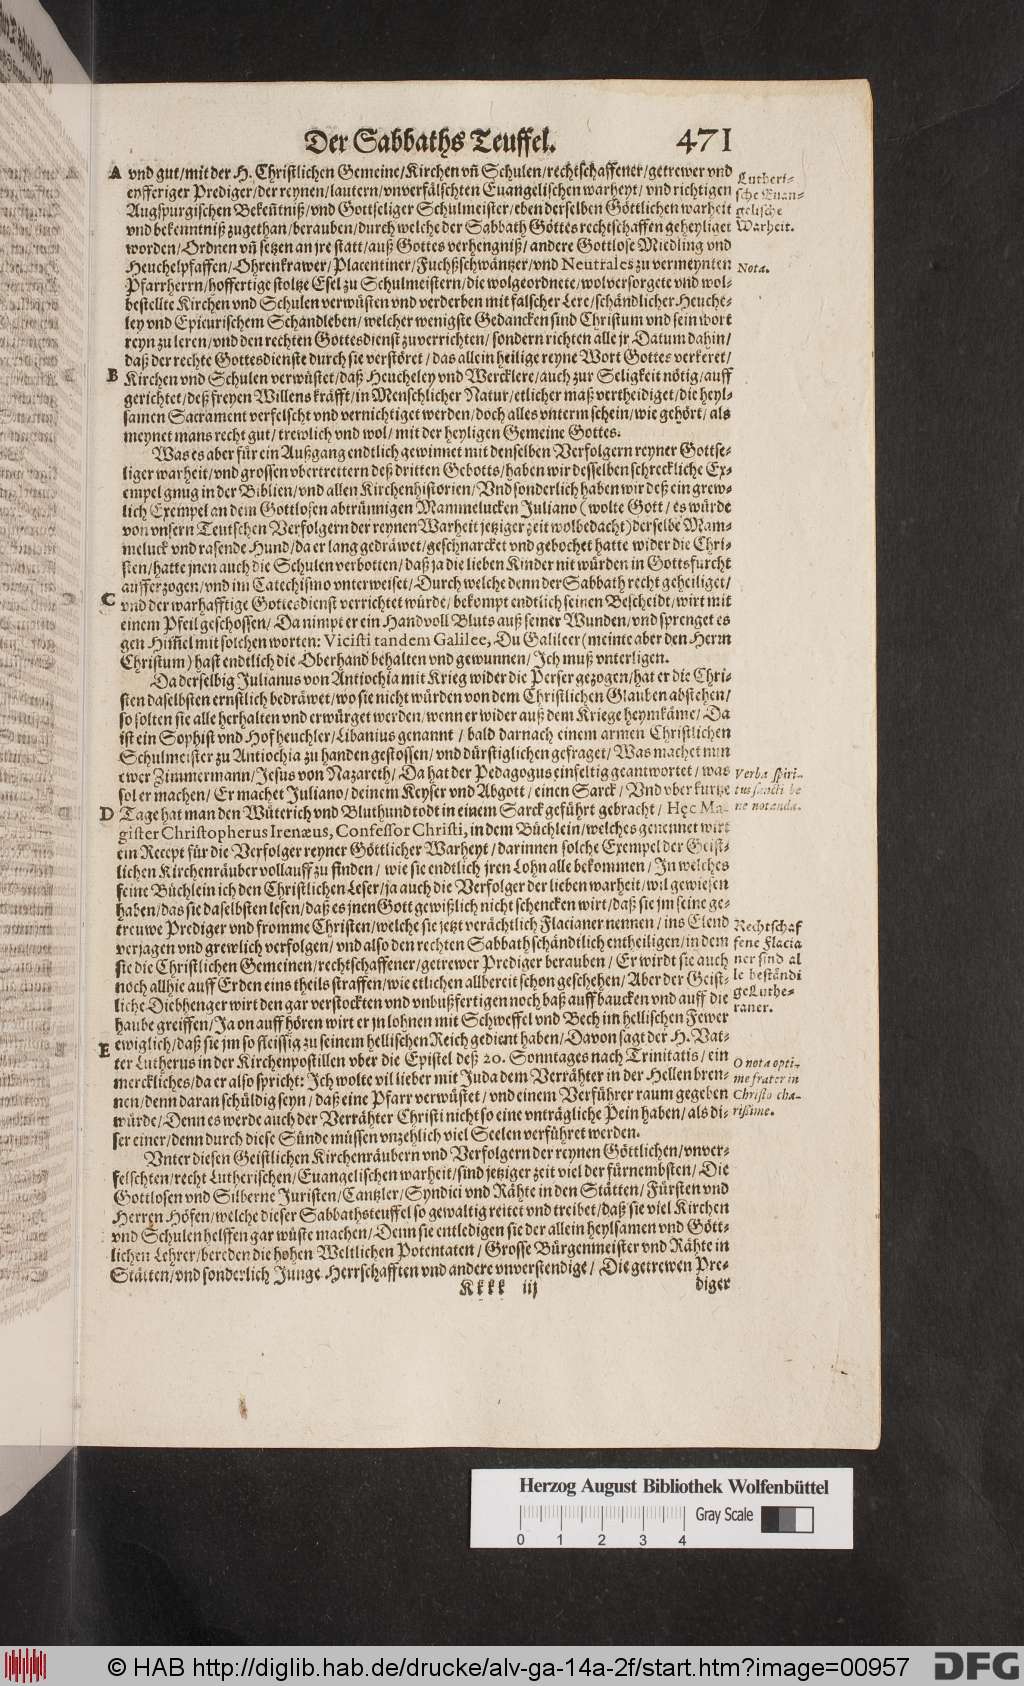 Der Sabbaths Teuffel. 471
A vnd gut/mit der H. Christlichen Gemeine/Kirchen vñ Schulen/rechtschaffener/getrewer vnd
eyfferiger Prediger/der reynen/lautern/vnverfälschten Euangelischen warheyt/vnd richtigen
Augspurgischen Bekeñtniß/vnd Gottseliger Schulmeister/eben derselben Göttlichen warheit
vnd bekenntniß zugethan/berauben/durch welche der Sabbath Gottes rechtschaffen geheyliget
worden/Ordnen vñ setzen an jre statt/auß Gottes verhengniß/andere Gottlose Miedling vnd
Heuchelpfaffen/Ohrenkrawer/Placentiner/Fuchßschwäntzer/vnd Neutrales zu vermeynten
Pfarrherrn/hoffertige stoltze Esel zu Schulmeistern/die wolgeordnete/wolversorgete vnd wol-
bestellte Kirchen vnd Schulen verwüsten vnd verderben mit falscher Lere/schändlicher Heuche-
ley vnd Epicurischem Schandleben/welcher wenigste Gedancken sind Christum vnd sein wort
reyn zu leren/vnd den rechten Gottesdienst zuverrichten/sondern richten alle jr Datum dahin/
daß der rechte Gottesdienste durch sie verstöret/das allein heilige reyne Wort Gottes verkeret/
B Kirchen vnd Schulen verwüstet/daß Heucheley vnd Wercklere/auch zur Seligkeit nötig/auff
gerichtet/deß freyen Willens kräfft/in Menschlicher Natur/etlicher maß vertheidiget/die heyl-
samen Sacrament verfelscht vnd vernichtiget werden/doch alles vnterm schein/wie gehört/als
meynet mans recht gut/trewlich vnd wol/mit der heyligen Gemeine Gottes.
Was es aber für ein Außgang endtlich gewinnet mit denselben Verfolgern reyner Gottse-
liger warheit/vnd grossen vbertrettern deß dritten Gebotts/haben wir desselben schreckliche Ex-
empel gnug in der Biblien/vnd allen Kirchenhistorien/Vnd sonderlich haben wir deß ein grew-
lich Exempel an dem Gottlosen abtrünnigen Mammelucken Juliano (wolte Gott/es würde
von vnsern Teutschen Verfolgern der reynen Warheit jetziger zeit wolbedacht) derselbe Mam-
meluck vnd rasende Hund/da er lang gedräwet/geschnarcket vnd gebochet hatte wider die Chri-
sten/hatte jnen auch die Schulen verbotten/daß ja die lieben Kinder nit würden in Gottsfurcht
aufferzogen/vnd im Catechismo vnterweiset/Durch welche denn der Sabbath recht geheiliget/
C vnd der warhafftige Gottesdienst verrichtet würde/bekompt endtlich seinen Bescheidt/wirt mit
einem Pfeil geschossen/Da nimpt er ein Handvoll Bluts auß seiner Wunden/vnd sprenget es
gen Him̃el mit solchen worten: Vicisti tandem Galilee, Du Galileer (meinte aber den Herrn
Christum) hast endtlich die Oberhand behalten vnd gewunnen/Ich muß vnterligen.
Da derselbig Julianus von Antiochia mit Krieg wider die Perser gezogen/hat er die Chri-
sten daselbsten ernstlich bedräwet/wo sie nicht würden von dem Christlichen Glauben abstehen/
so solten sie alle herhalten vnd erwürget werden/wenn er wider auß dem Kriege heymkäme/Da
ist ein Sophist vnd Hofheuchler/Libanius genannt/bald darnach einem armen Christlichen
Schulmeister zu Antiochia zu handen gestossen/vnd dürstiglichen gefraget/Was machet nun
ewer Zimmermann/Jesus von Nazareth/Da hat der Pedagogus einfeltig geantwortet/was
sol er machen/Er machet Juliano/deinem Keyser vnd Abgott/einen Sarck/Vnd vber kurtze
D Tage hat man den Wüterich vnd Bluthund todt in einem Sarck geführt gebracht/Hęc Ma-
gister Christopherus Irenæus, Confessor Christi, in dem Büchlein/welches genennet wirt
ein Recept für die Verfolger reyner Göttlicher Warheyt/darinnen solche Exempel der Geist-
lichen Kirchenräuber vollauff zu finden/wie sie endtlich jren Lohn alle bekommen/In welches
feine Büchlein ich den Christlichen Leser/ja auch die Verfolger der lieben warheit/wil gewiesen
haben/das sie daselbsten lesen/daß es jnen Gott gewißlich nicht schencken wirt/daß sie jm seine ge-
treuwe Prediger vnd fromme Christen/welche sie jetzt verächtlich Flacianer nennen/ins Elend
verjagen vnd grewlich verfolgen/vnd also den rechten Sabbath schändtlich entheiligen/in dem
sie die Christlichen Gemeinen/rechtschaffener/getrewer Prediger berauben/Er wirdt sie auch
noch allhie auff Erden eins theils straffen/wie etlichen allbereit schon geschehen/Aber der Geist-
liche Diebhenger wirt den gar verstockten vnd vnbußfertigen noch baß auff baucken vnd auff die
haube greiffen/Ja on auffhören wirt er jn lohnen mit Schweffel vnd Bech im hellischen Fewer
E ewiglich/daß sie jm so fleissig zu seinem hellischen Reich gedient haben/Davon sagt der H. Vat-
ter Lutherus in der Kirchenpostillen vber die Epistel deß 20. Sonntages nach Trinitatis/ein
merckliches/da er also spricht: Ich wolte vil lieber mit Juda dem Verrähter in der Hellen bren-
nen/denn daran schüldig seyn/daß eine Pfarr verwüstet/vnd einem Verführer raum gegeben
würde/Denn es werde auch der Verrähter Christi nicht so eine vnträgliche Pein haben/als di-
ser einer/denn durch diese Sünde müssen vnzehlich viel Seelen verführet werden.
Vnter diesen Geistlichen Kirchenräubern vnd Verfolgern der reynen Göttlichen/vnver-
felschten/recht Lutherischen/Euangelischen warheit/sind jetziger zeit viel der fürnembsten/Die
Gottlosen vnd Silberne Juristen/Cantzler/Syndici vnd Rähte in den Stätten/Fürsten vnd
Herren Höfen/welche dieser Sabbathsteuffel so gewaltig reitet vnd treibet/daß sie viel Kirchen
vnd Schulen helffen gar wüste machen/Denn sie entledigen sie der allein heylsamen vnd Gött-
lichen Lehrer/bereden die hohen Weltlichen Potentaten/Grosse Bürgenmeister vnd Rähte in
Stätten/vnd sonderlich Junge Herrschafften vnd andere vnverstendige/Die getrewen Pre-
Kkkk iij diger
Lutheri-
sche Euan-
gelische
Warheit.
Nota.
Verba spiri-
tus sancti be
ne notanda.
Rechtschaf
fene Flacia
ner sind al
le beständi
ge Luthe-
raner.
O nota opti-
me frater in
Christo cha-
rissime.
Herzog August Bibliothek Wolfenbüttel
Gray Scale
0 1 2 3 4
© HAB http://diglib.hab.de/drucke/alv-ga-14a-2f/start.htm?image=00957
DFG